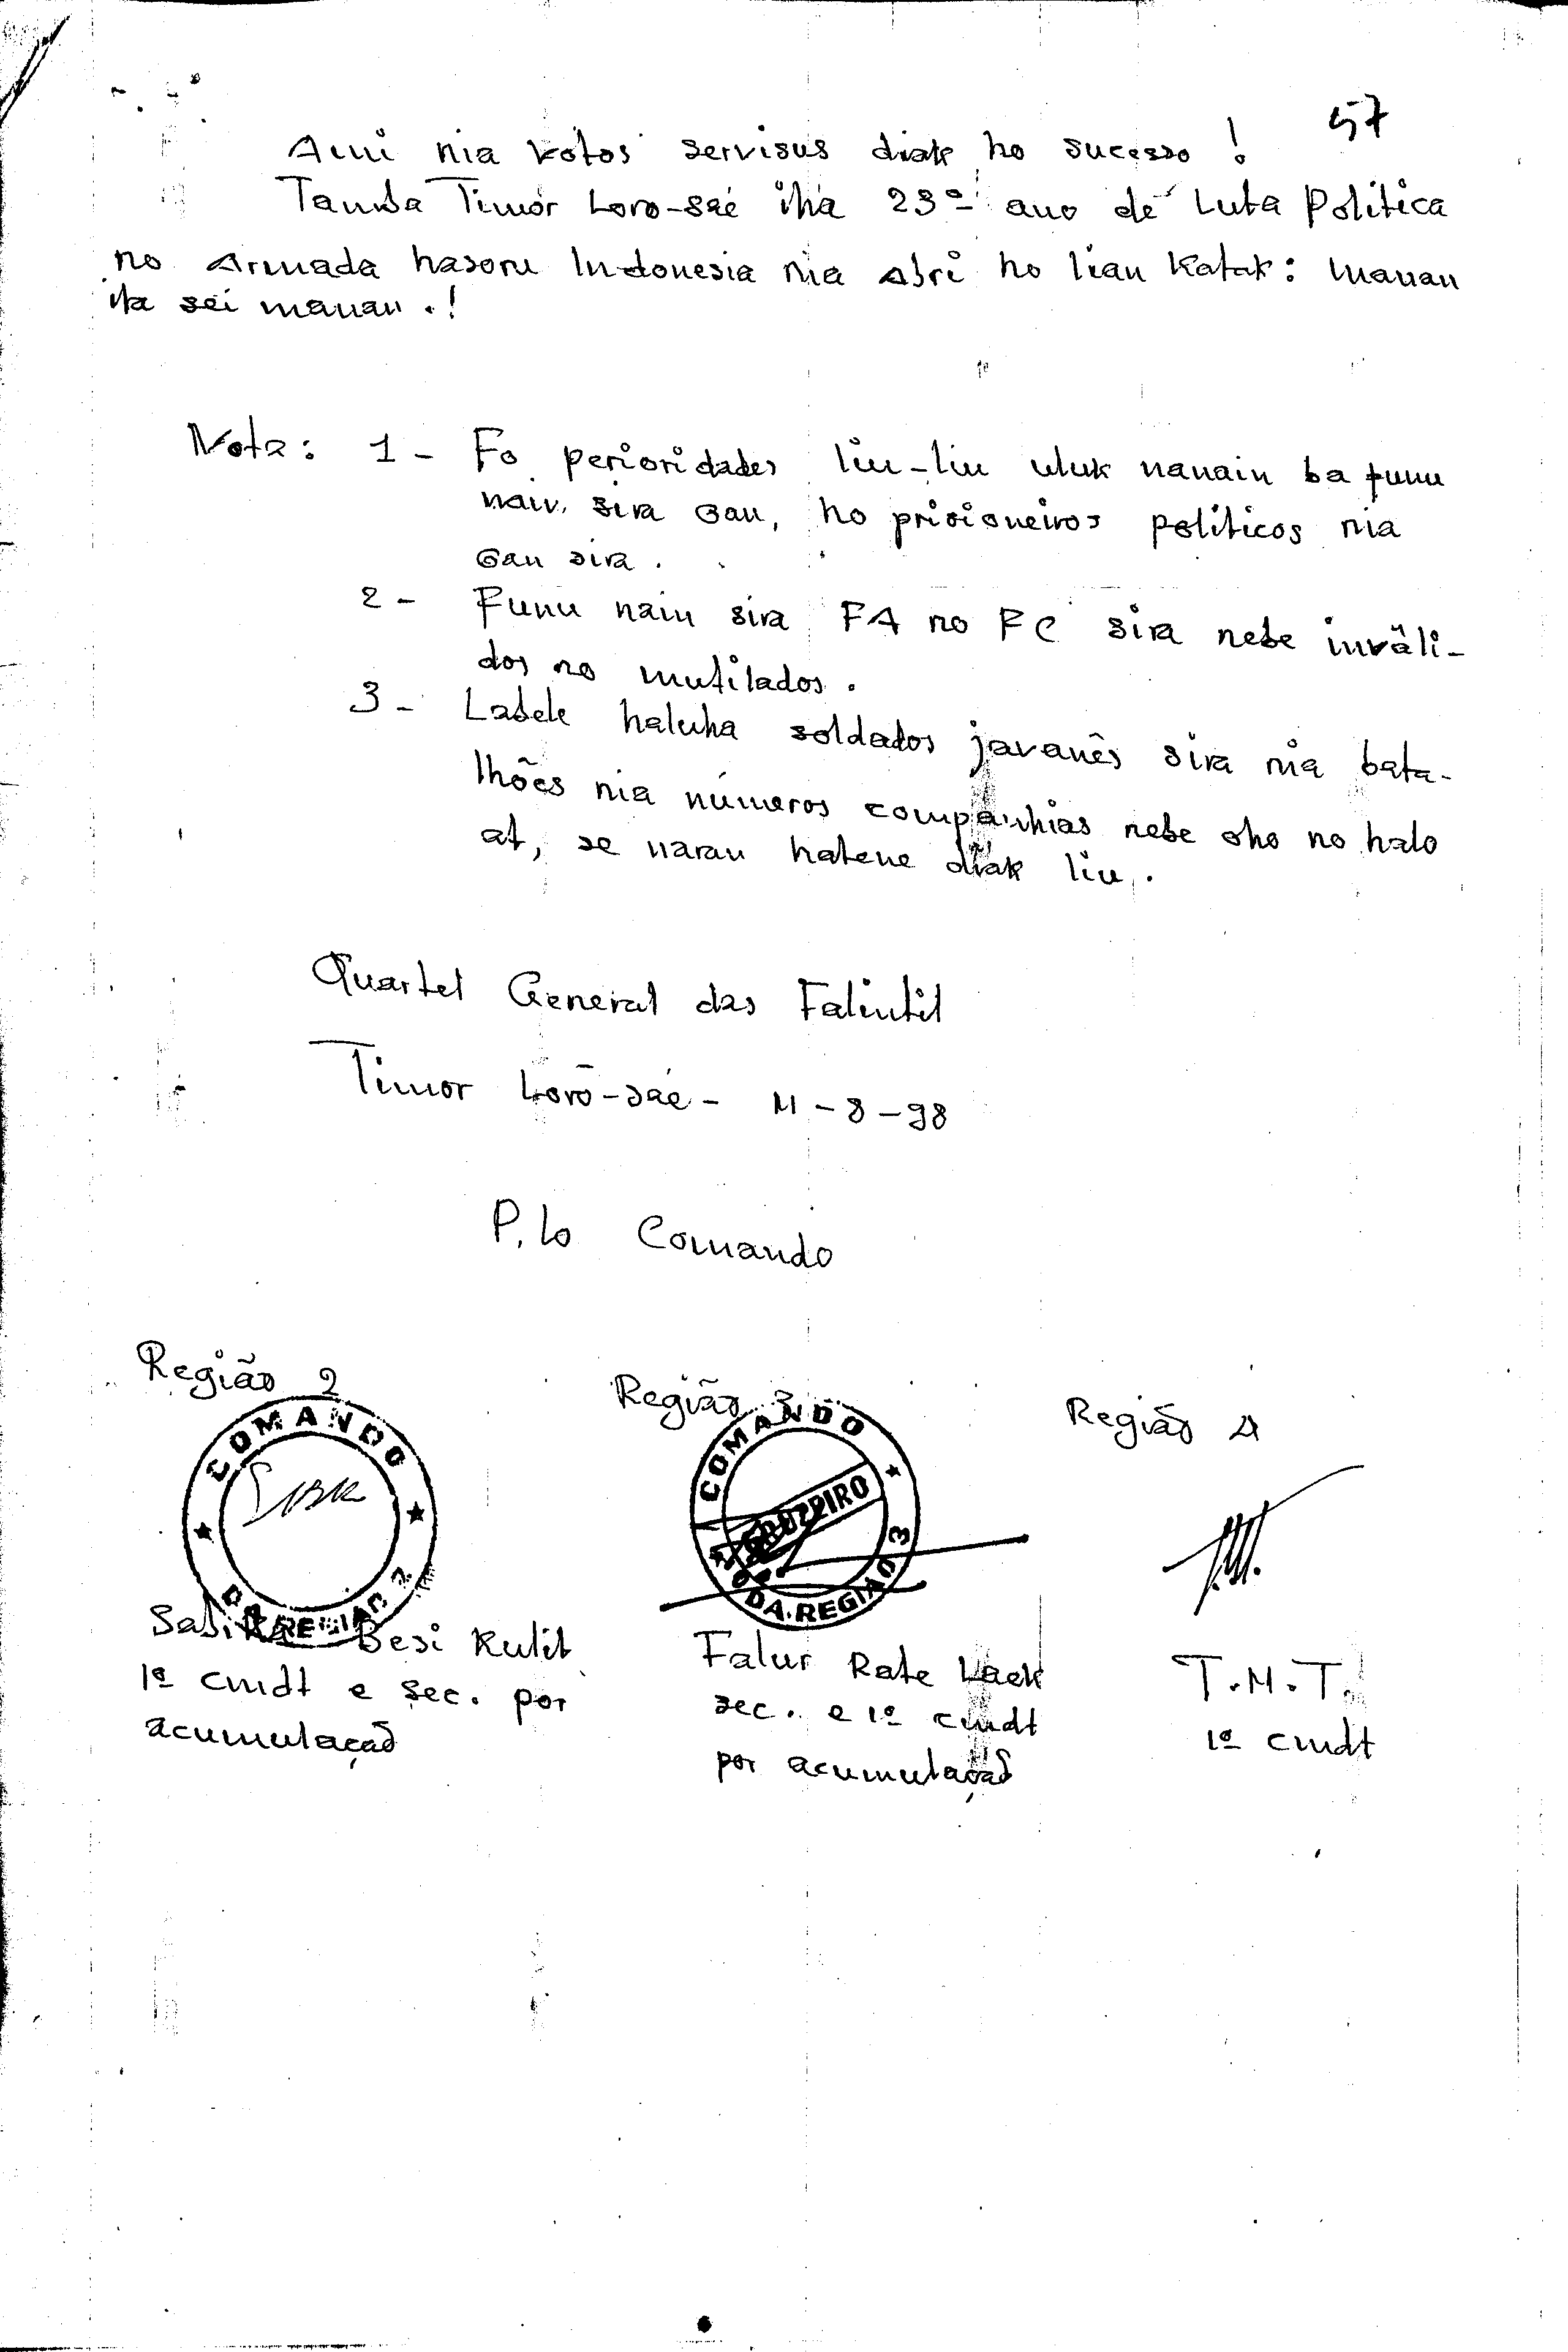 57
Ami nia votos servisus diak ho sucesso !
Tanba Timor Loro-saé iha 23º ano de Luta Politica
no Armada hasoru Indonesia nia Abri ho lian Katak: manan
ita sei manan.!
Nota: 1 - Fo perioridades liu-liu uluk nanain ba funu
nain sira oan, ho prisioneiros políticos nia
oan sira.
2 - Funu nain sira FA no FC sira nebe inváli-
dos no mutilados.
3 - Labele haluha soldados javanês sira nia bata-
lhões nia números companhias nebe oho no halo
at, se naran hatene diak liu.
Quartel General das Falintil
Timor Loro-saé - 11-8-98
P.lo Comando
Região 2
Região 3
Região 4
COMANDO
DA REGIÃO 2
COMANDO
CRUZEIRO
DA REGIÃO 3
Sabika Besi Kulit
1º cmdt e sec. por
acumulação
Falur Rate Laek
sec. e 1º cmdt
por acumulação
T.M.T.
1º cmdt